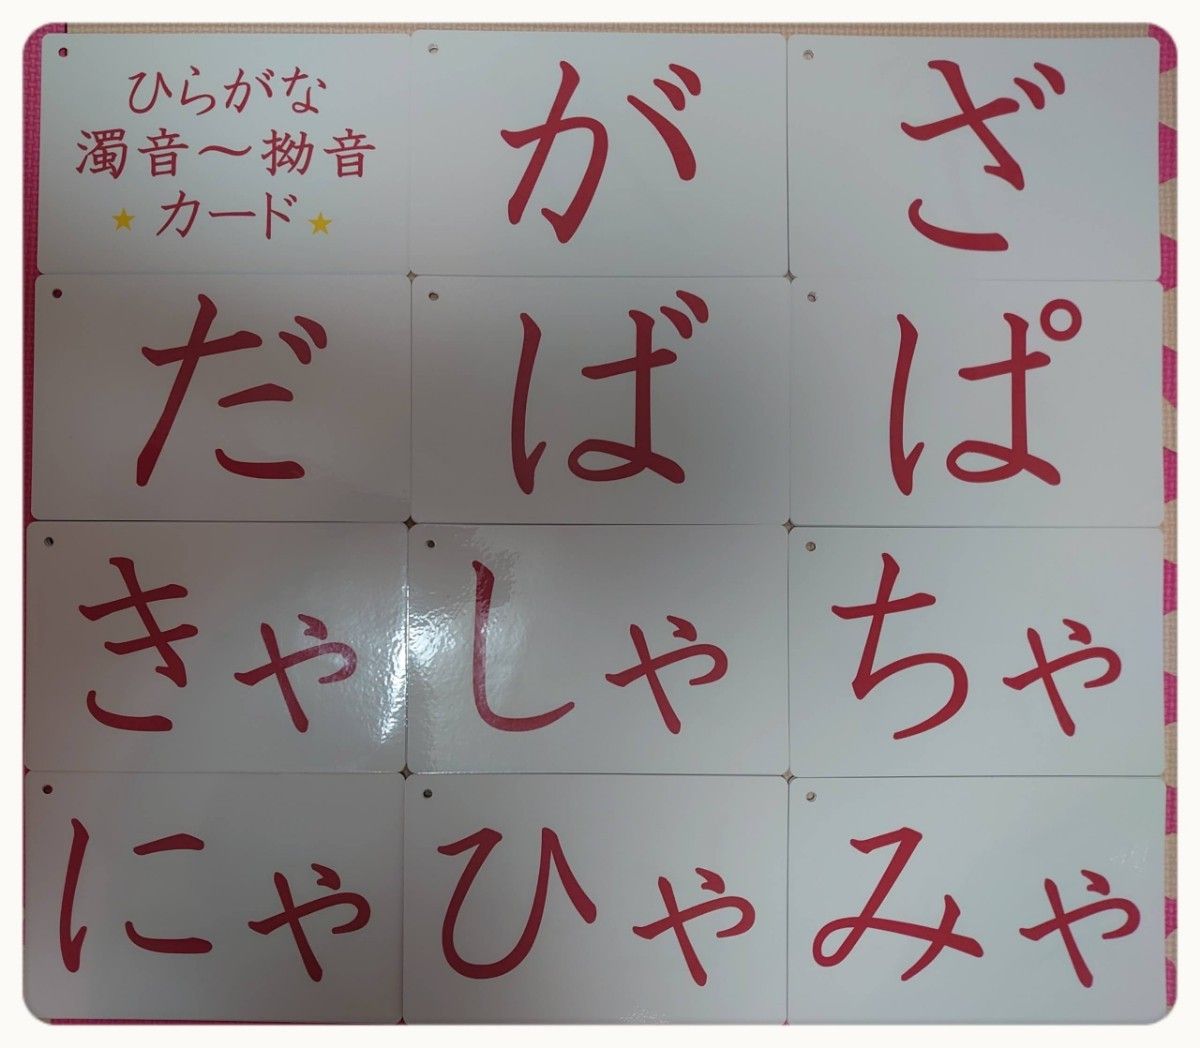 ひらがな
濁音～拗音
★カード★
が
ざ
だ
ば
ぱ
きゃ
しゃ
ちゃ
にゃ
ひゃ
みゃ